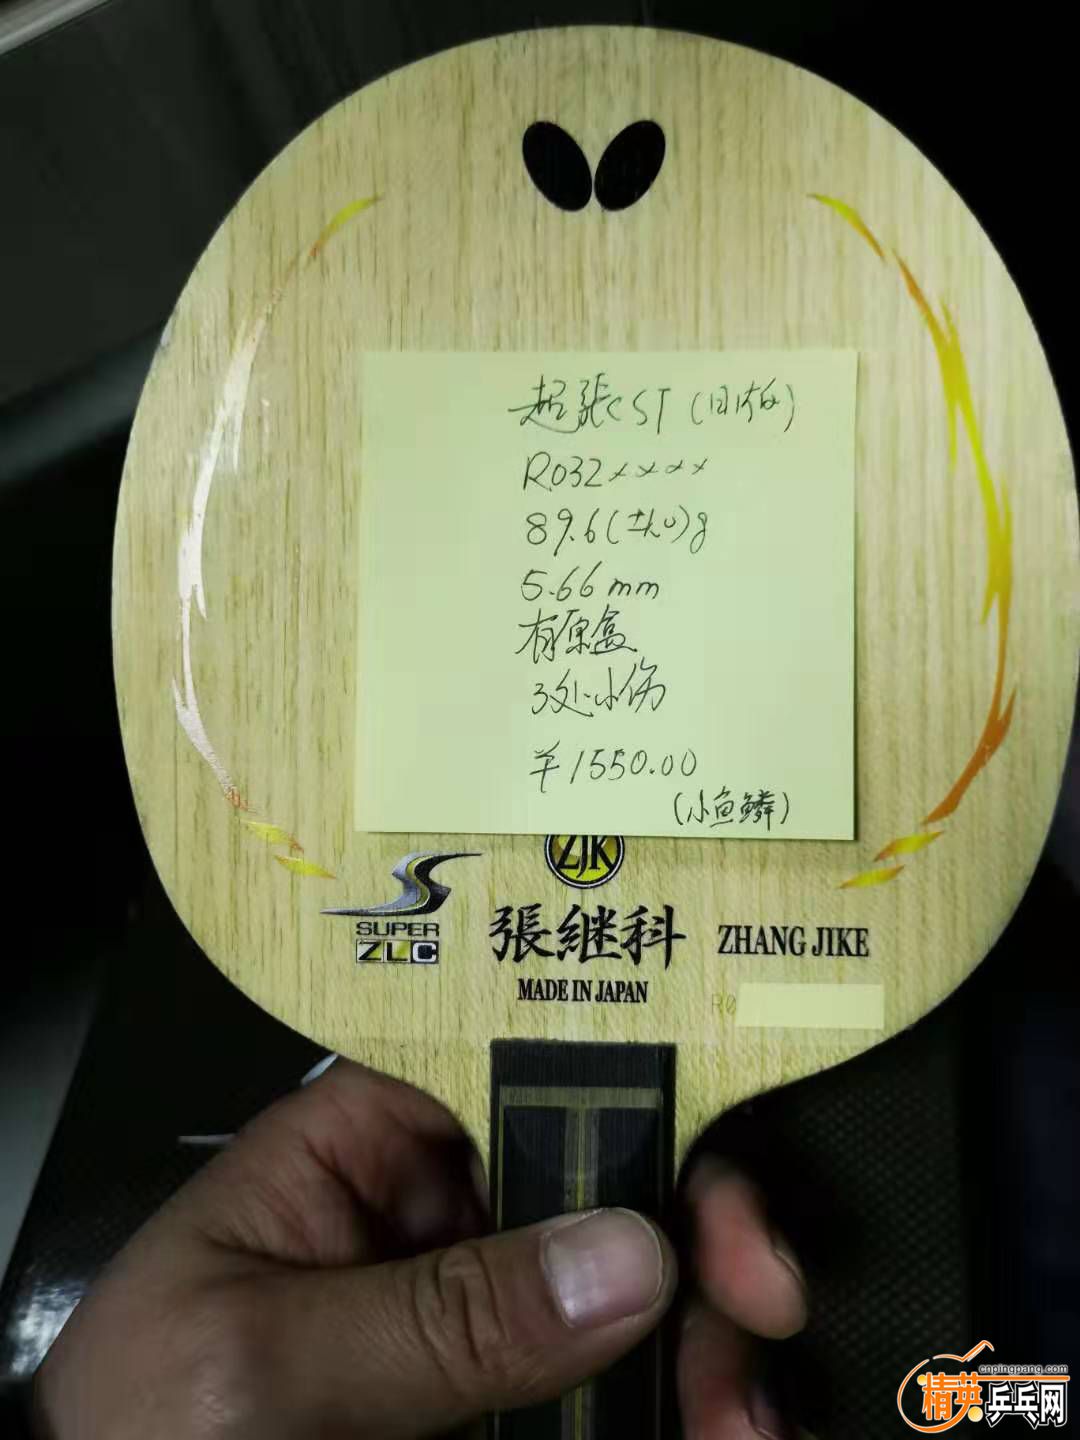 超張CST(日内版)
R032××××
89.6(±1.0)g
5.66mm
有原盒
3处小伤
¥1550.00
(小鱼鳞)
ZJK
SUPER
ZLC
張継科
ZHANG JIKE
MADE IN JAPAN
R0
cnpingpang.com
精英乒乓网